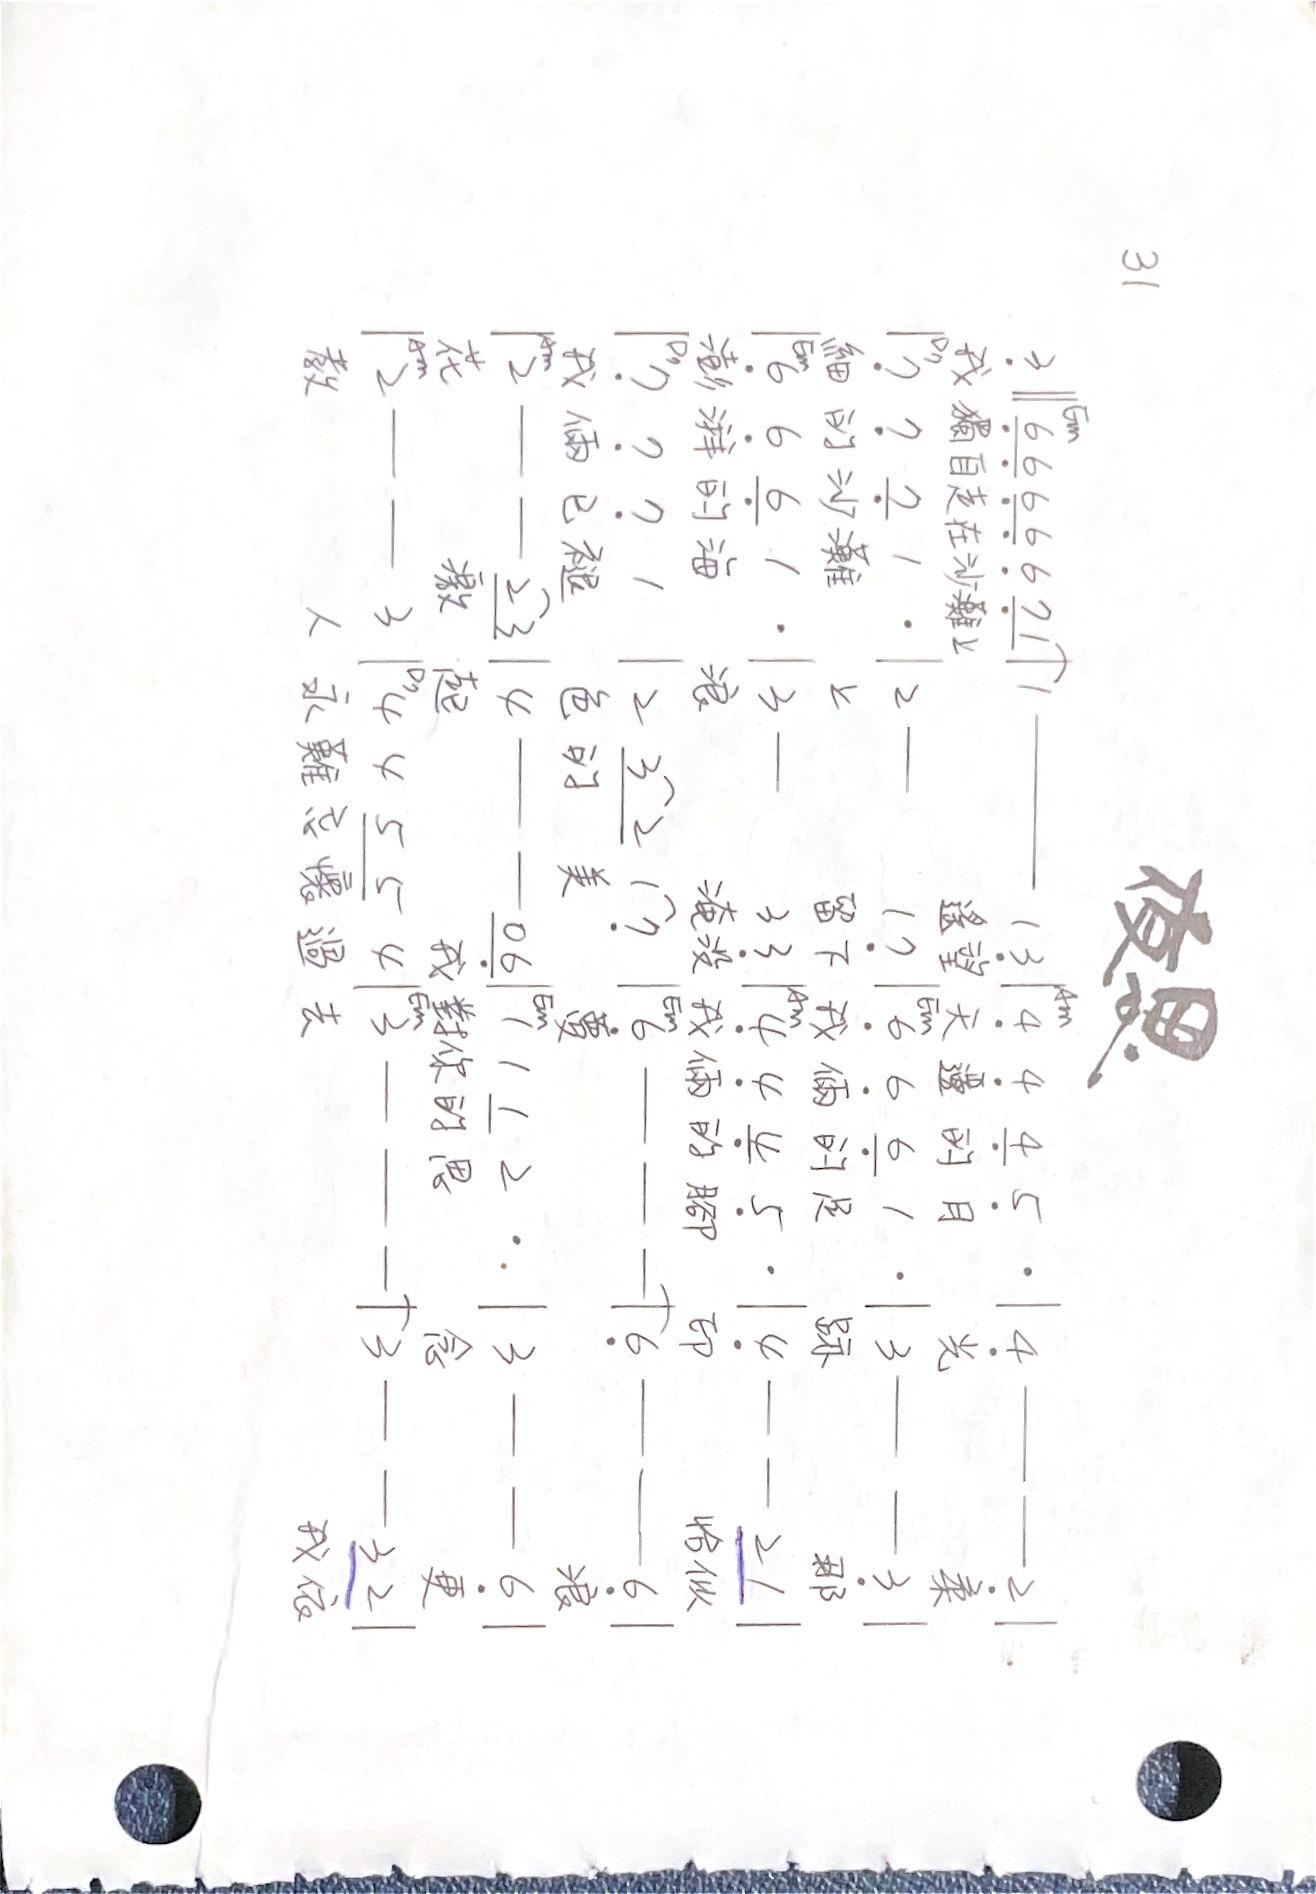 夜思
31
Em Am
3 ‖ 6 6 6 6 6 7 1 | 1 — 1 3 | 4 4 4 5 · | 4 — — 2 |
我 獨自走在沙灘上 遙望 天邊的月 光 柔
D7 Em
| 7 7 7 1 · | 2 — 1 7 | 6 6 6 1 · | 3 — — 3 |
細的沙灘 上 留下 我倆的足 跡 那
Em Am
| 6 6 6 1 · | 3 — 3 3 | 4 4 4 5 · | 4 — — 2 1 |
澎湃的海 浪 淹没 我倆的腳 印 恰似
D7 Em
| 7 7 7 1 | 2 3 2 1 7 | 6 — — — | 6 — — 6 |
我倆已褪 色的 美 夢 浪
Am Em
| 2 — — 2 3 | 4 — — 0 6 | 1 1 1 2 · | 3 — — 6 |
花 激 起 我 對你的思 念 更
Am D7 Em
| 2 — — 3 | 4 4 5 5 4 | 3 — — — | 3 — — 3 2 |
教 人 永難忘懷過 去 我依